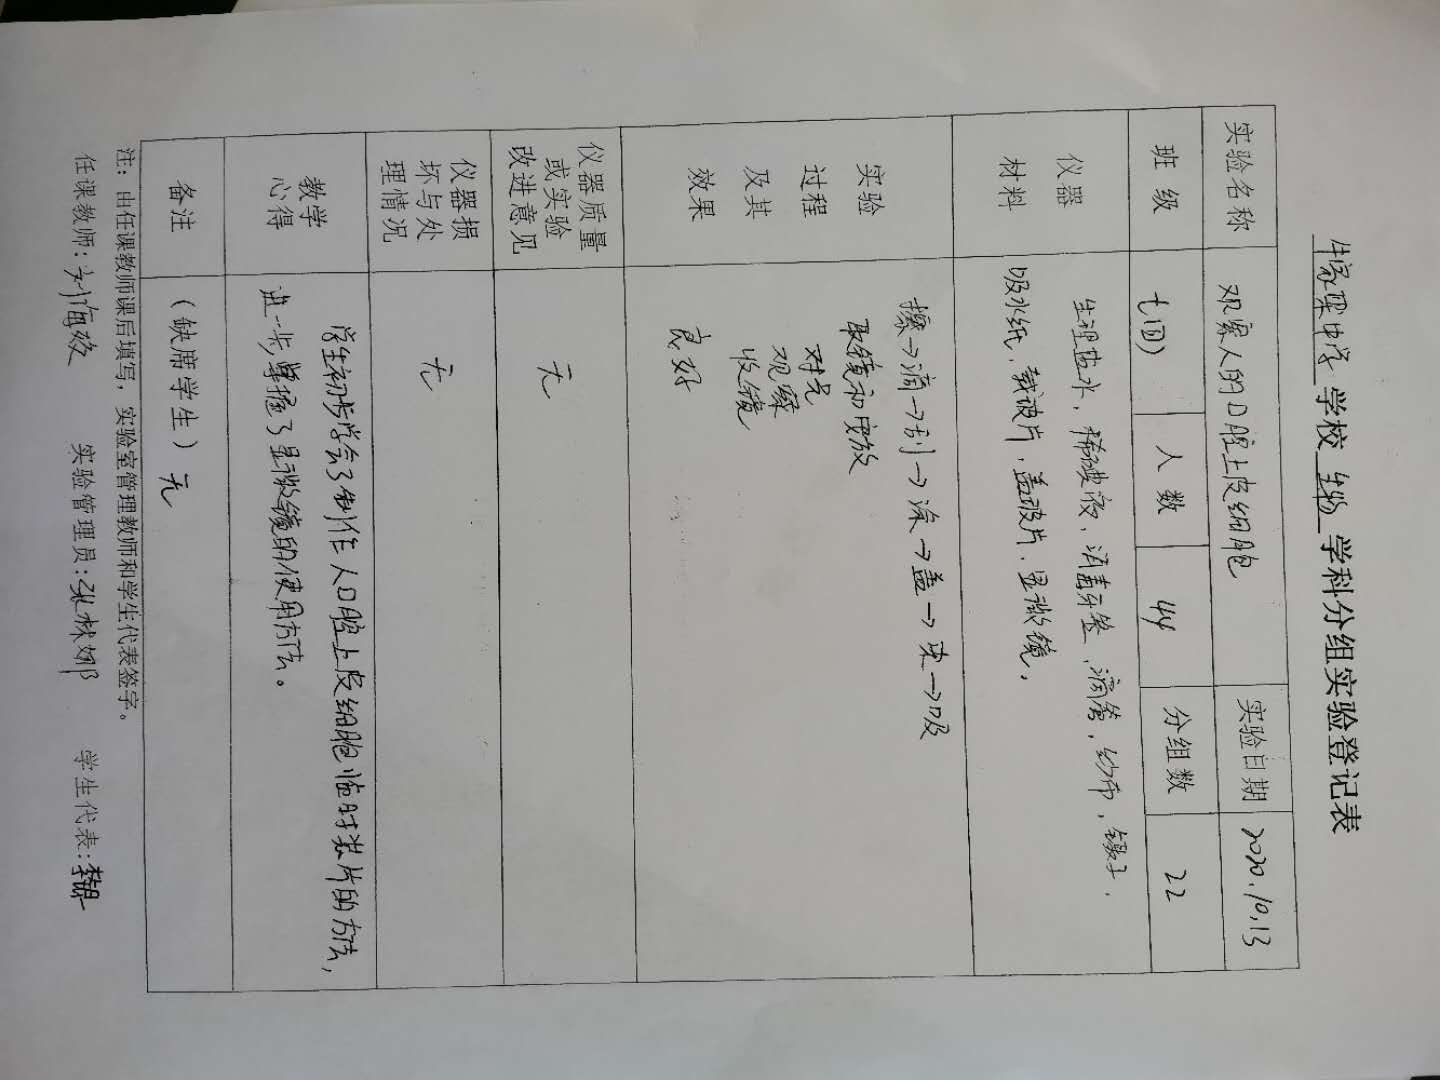 牛家梁中学 学校 生物 学科分组实验登记表
实验名称 观察人的口腔上皮细胞 实验日期 2020.10.13
班级 七(四) 人数 44 分组数 22
仪器
材料
生理盐水、稀碘液、消毒牙签、滴管、纱布、镊子、
吸水纸、载玻片、盖玻片、显微镜。
实验
过程
及其
效果
擦→滴→刮→涂→盖→染→吸
取镜和安放
对光
观察
收镜
良好
仪器质量
或实验
改进意见
无
仪器损
坏与处
理情况
无
教学
心得
学生初步学会了制作人口腔上皮细胞临时装片的方法,
进一步掌握了显微镜的使用方法。
备注 (缺席学生) 无
注：由任课教师课后填写，实验室管理教师和学生代表签字。
任课教师: 刘海 实验管理员: 张林娜 学生代表: 李